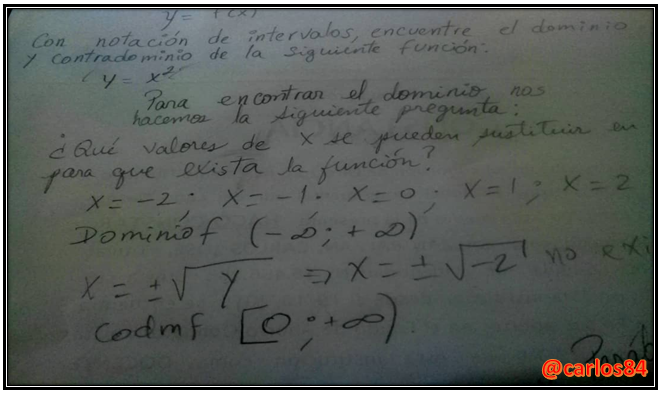 y = f(x)
Con notación de intervalos, encuentre el dominio
y contradominio de la siguiente función:
y = x²
Para encontrar el dominio nos
hacemos la siguiente pregunta:
¿Qué valores de x se pueden sustituir en
para que exista la función?
x = -2; x = -1; x = 0; x = 1; x = 2
Dominio f (-∞; +∞)
x = ±√y ⇒ x = ±√-2 no exi
Codmf [0; +∞)
@carlos84